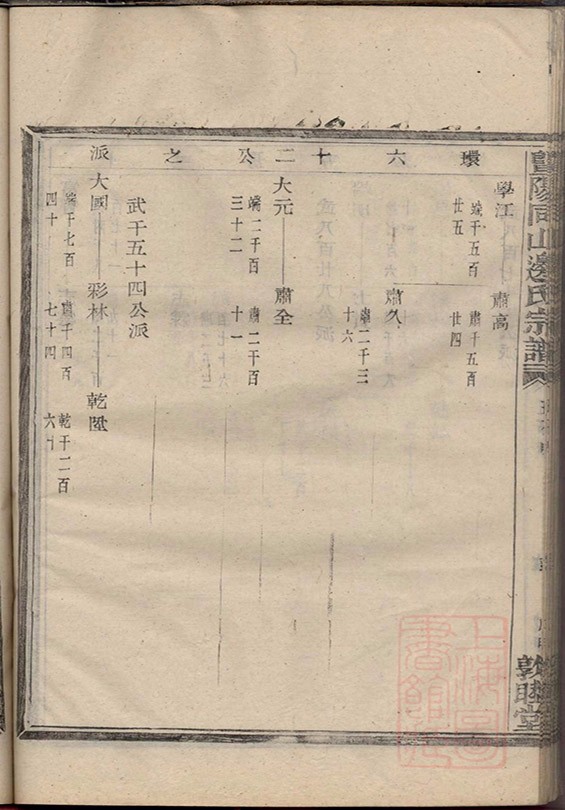 暨陽同山邊氏宗譜
敦睦堂
環
六
十
二
公
之
派
學江
端千五百
廿五
肅高
肅千五百
廿四
肅久
肅二千三
十六
大元
端二千百
三十二
肅全
肅二千百
十一
武千五十四公派
大國
端千七百
四十
彩林
肅千四百
七十四
乾陞
乾千二百
六十
上海圖
書館藏